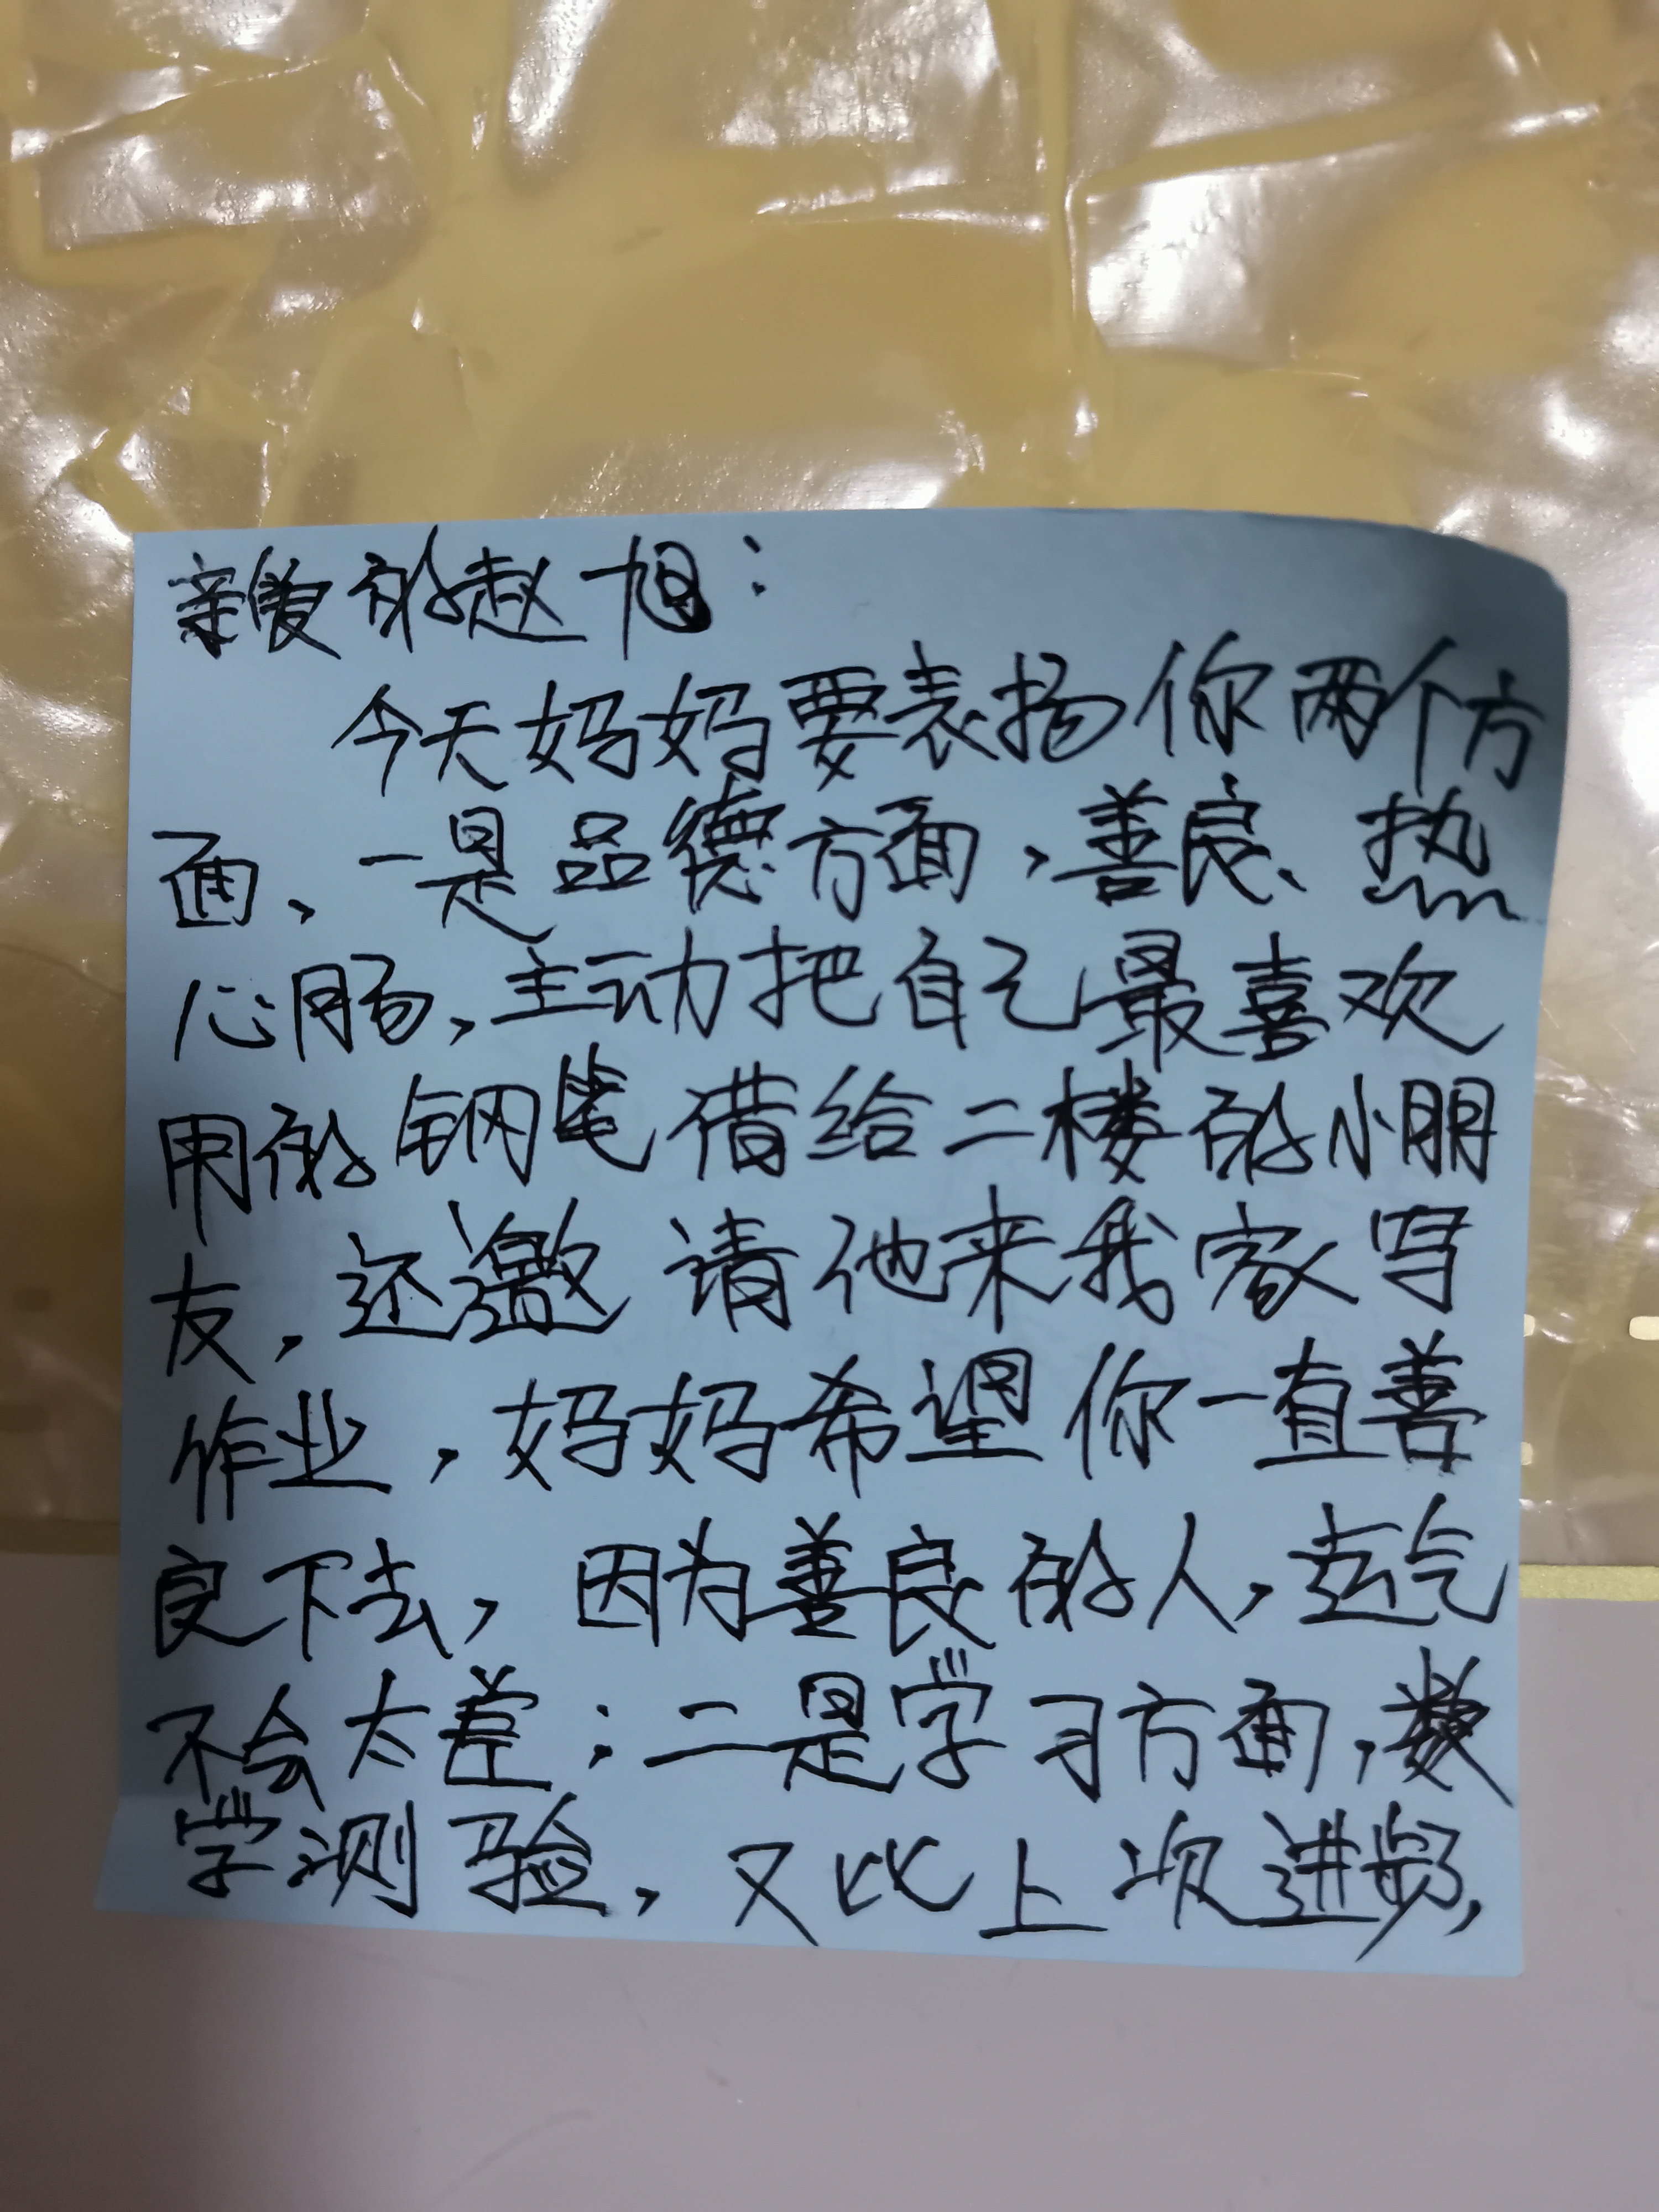 亲爱的赵旭：
今天妈妈要表扬你两个方
面、一是品德方面，善良、热
心肠，主动把自己最喜欢
用的钢笔借给二楼的小朋
友，还邀请他来我家写
作业，妈妈希望你一直善
良下去，因为善良的人，运气
不会太差；二是学习方面，数
学测验，又比上次进步，